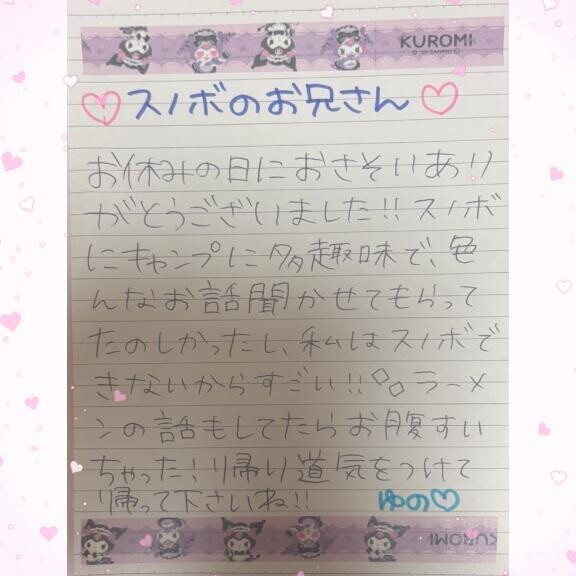 KUROMI
♡スノボのお兄さん♡
お休みの日におさそいあり
がとうございました!!スノボ
にキャンプに多趣味で、色
んなお話聞かせてもらって
たのしかったし、私はスノボで
きないからすごい!!○○ラーメ
ンの話もしてたらお腹すい
ちゃった!帰り道気をつけて
帰って下さいね!!
ゆの♡
KUROMI